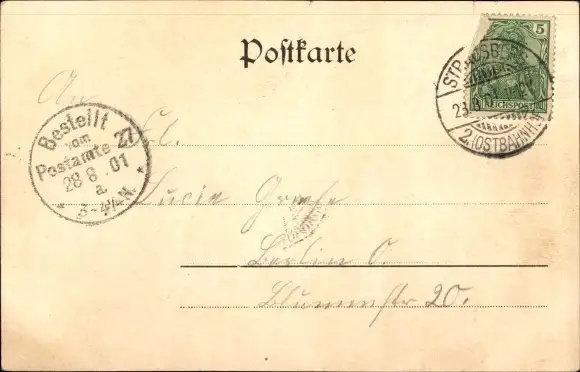 Postkarte
5
REICHSPOST
STRAUSBERG
2. (OSTBAHNHOF)
Bestellt
vom
Postamte 27
28 8. 01
a.
3-4½N.
An
Frl.
Lucie
Berlin O.
Blumenstr 20.